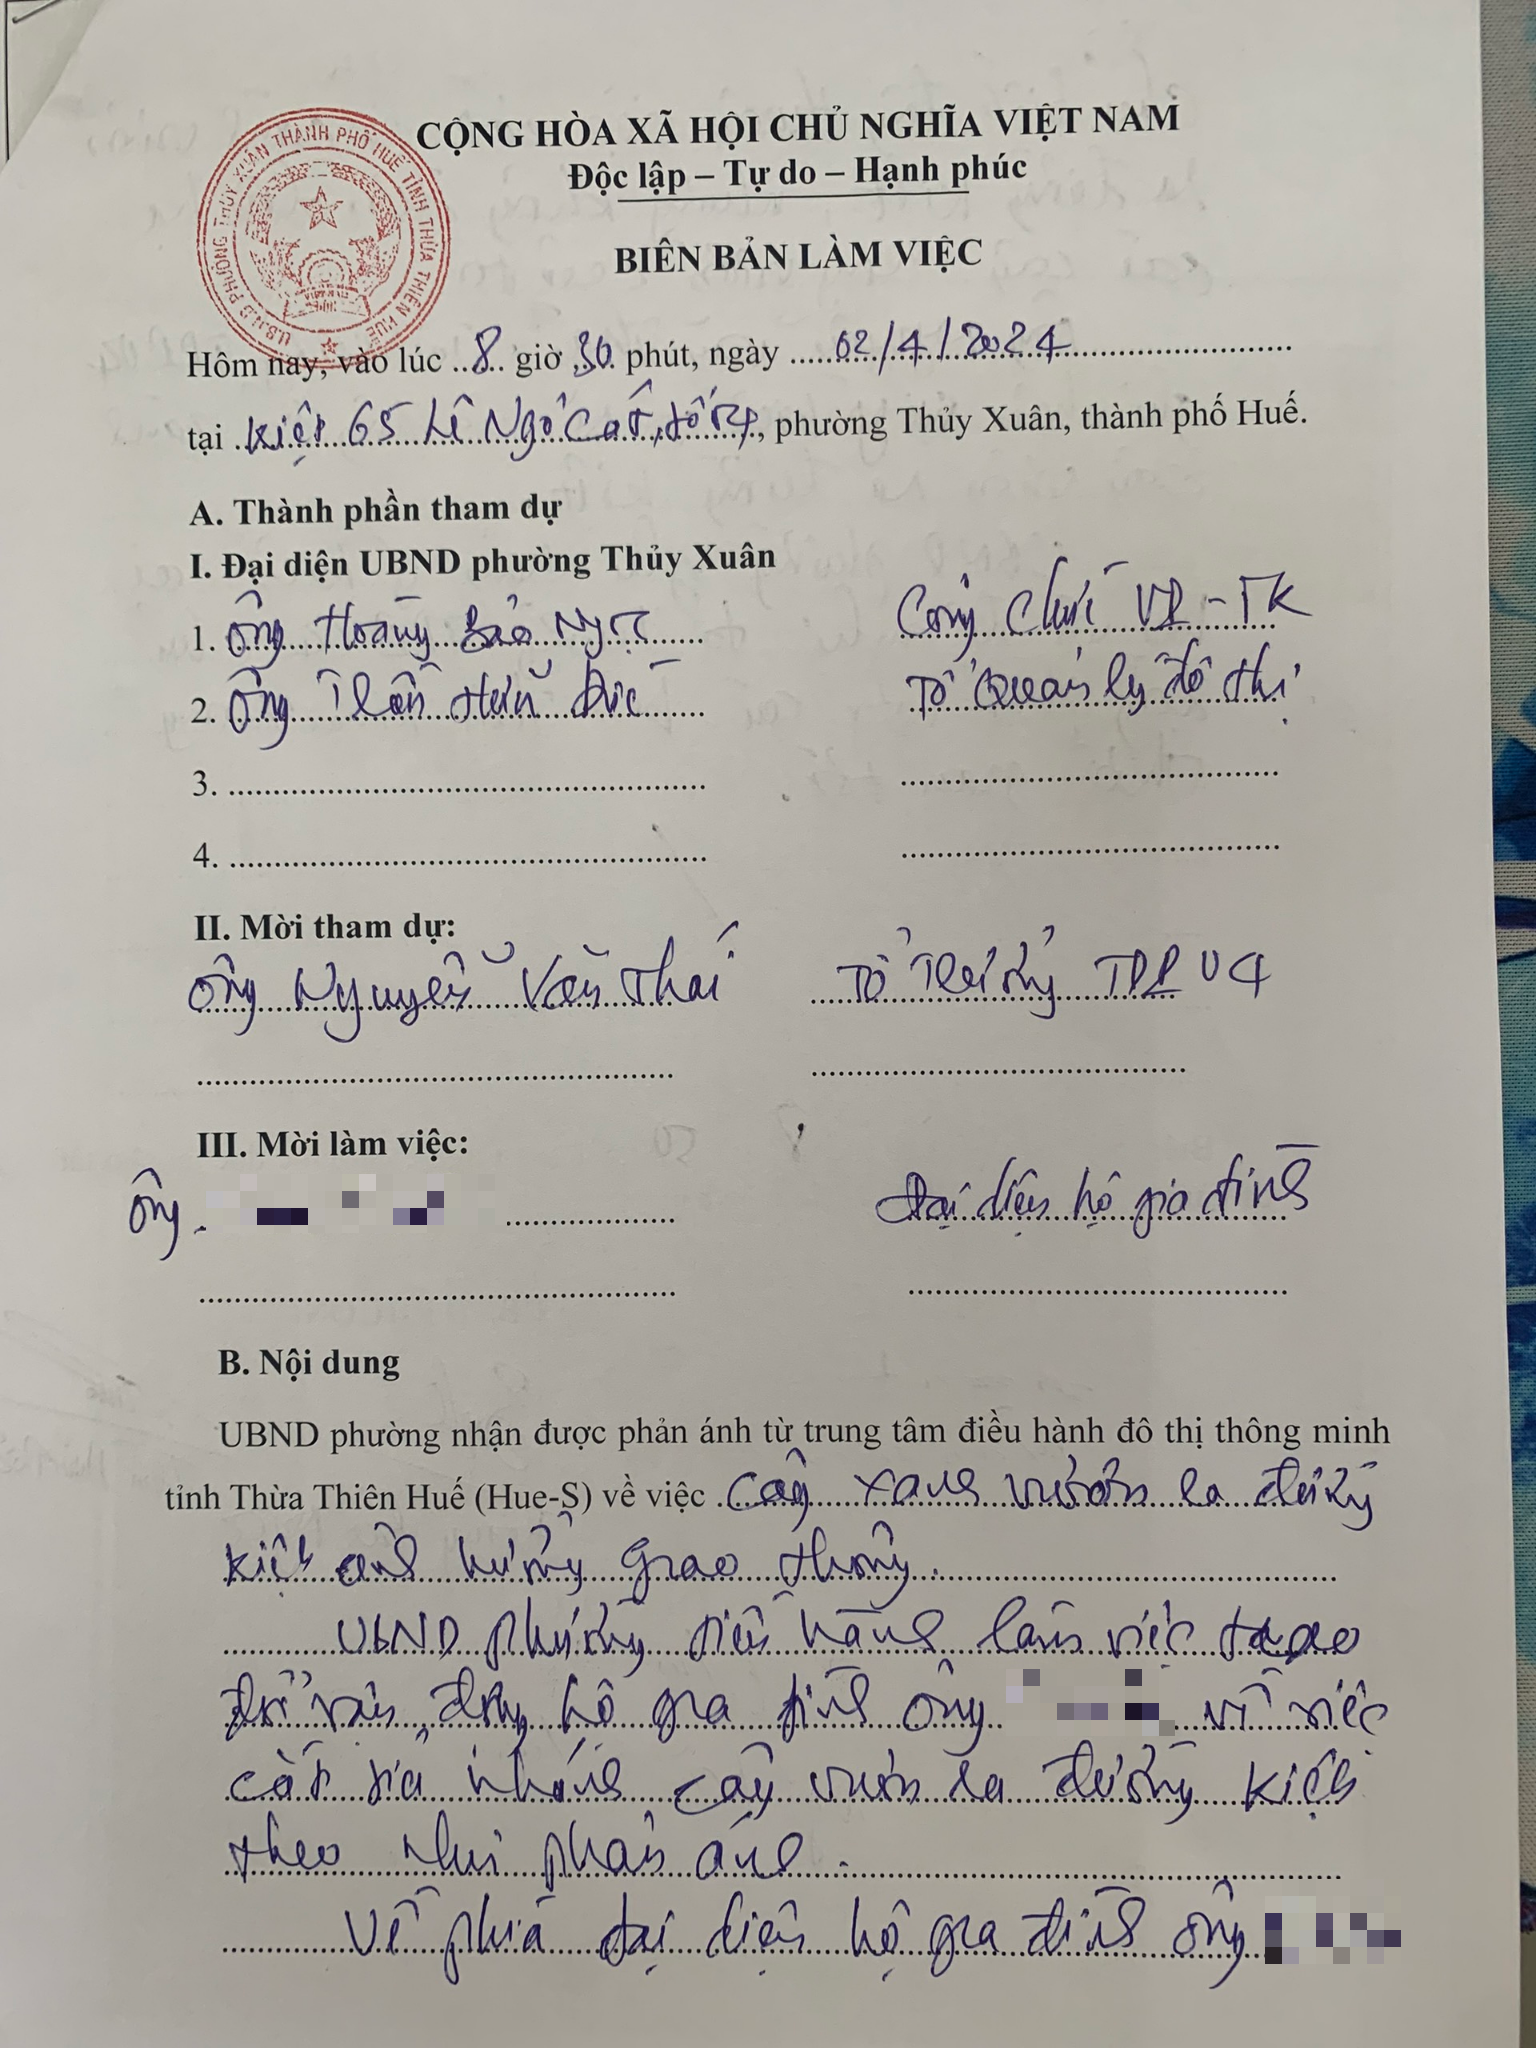 CỘNG HÒA XÃ HỘI CHỦ NGHĨA VIỆT NAM
Độc lập – Tự do – Hạnh phúc
BIÊN BẢN LÀM VIỆC
U.B.N.D PHƯỜNG THỦY XUÂN THÀNH PHỐ HUẾ TỈNH THỪA THIÊN HUẾ
Hôm nay, vào lúc 8 giờ 30 phút, ngày 02/4/2024
tại kiệt 65 Lê Ngô Cát, tổ, phường Thủy Xuân, thành phố Huế.
A. Thành phần tham dự
I. Đại diện UBND phường Thủy Xuân
1. Ông Hoàng Bảo Công chức VP-TK
2. Ông Trần Hữu Đức Tổ Quản lý đô thị
3.
4.
II. Mời tham dự:
Ông Nguyễn Văn Thái Tổ Trưởng TDP
III. Mời làm việc:
Ông Đại diện hộ gia đình
B. Nội dung
UBND phường nhận được phản ánh từ trung tâm điều hành đô thị thông minh
tỉnh Thừa Thiên Huế (Hue-S) về việc cây xanh vươn ra đường
kiệt ảnh hưởng giao thông.
UBND phường tiến hành làm việc trao
đổi vận động hộ gia đình ông về việc
cắt tỉa nhánh cây vươn ra đường kiệt
theo như phản ánh.
Về phía đại diện hộ gia đình ông